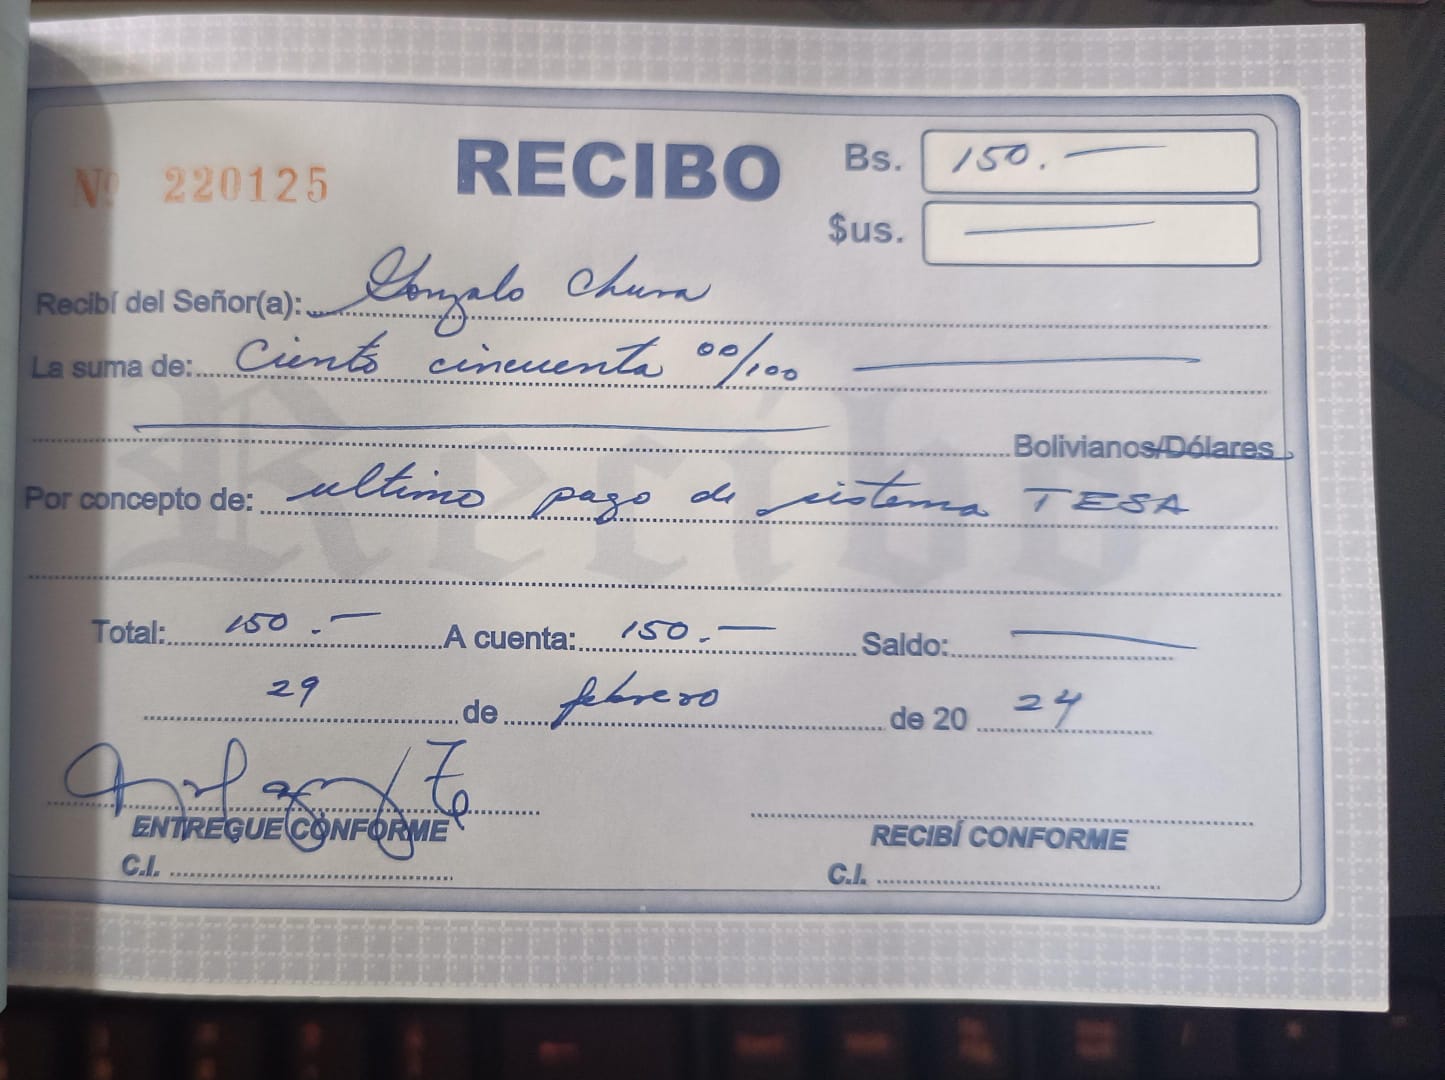 Nº 220125
RECIBO
Bs. 150.—
$us. —
Recibí del Señor(a): Gonzalo Chura
La suma de: Ciento cincuenta 00/100
Bolivianos/Dólares
Por concepto de: ultimo pago de sistema TESA
Recibo
Total: 150.— A cuenta: 150.— Saldo: —
29 de febrero de 2024
ENTREGUE CONFORME
RECIBÍ CONFORME
C.I.
C.I.